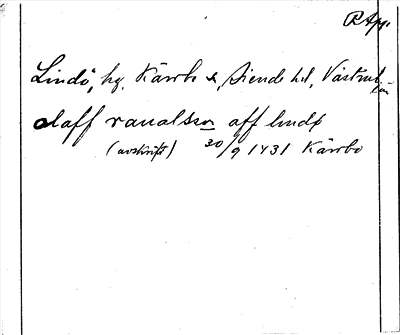 RApp.
Lindö, hg. Kärrbo s, Siende hd, Västml län
olaff raualsson aff lindø
(avskrift) 30/9 1431 Kärrbo